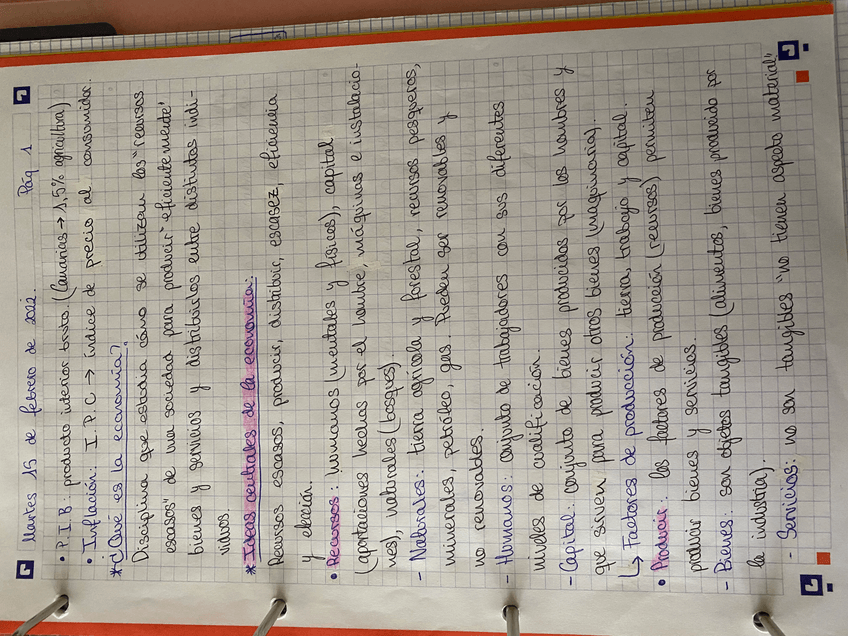 Martes 15 de febrero de 2022. Pág 1
• P.I.B: producto interior bruto. (Canarias → 1,5% agricultura)
• Inflación: I.P.C → índice de precio al consumidor.
*¿Qué es la economía?
Disciplina que estudia cómo se utilizan los "recursos
escasos" de una sociedad para producir "eficientemente"
bienes y servicios y distribuirlos entre distintos indi-
viduos.
* Ideas centrales de la economía:
Recursos escasos, producir, distribuir, escasez, eficiencia
y elección.
• Recursos: humanos (mentales y físicos), capital
(aportaciones hechas por el hombre, máquinas e instalacio-
nes), naturales (bosques).
- Naturales: tierra agrícola y forestal, recursos pesqueros,
minerales, petróleo, gas. Pueden ser renovables y
no renovables.
- Humanos: conjunto de trabajadores con sus diferentes
niveles de cualificación.
- Capital: conjunto de bienes producidos por los hombres y
que sirven para producir otros bienes (maquinaria).
↳ Factores de producción: tierra, trabajo y capital.
• Producir: los factores de producción (recursos) permiten
producir bienes y servicios.
- Bienes: son objetos tangibles (alimentos, bienes producido por
la industria).
- Servicios: no son tangibles "no tienen aspecto material"